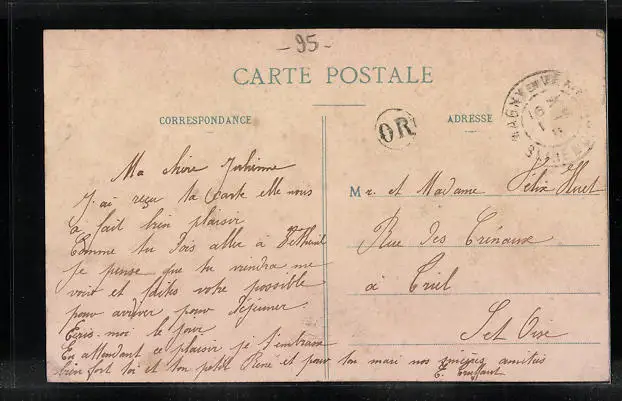 - 95 -
CARTE POSTALE
CORRESPONDANCE
ADRESSE
OR
MAGNY EN VEXIN
Ma chère
J'ai reçu ta carte elle nous
a fait bien plaisir
Comme tu dois aller à Vétheuil
je pense que tu viendra me
voir et faites votre possible
pour arriver pour déjeuner.
Ecris-moi le jour
En attendant ce plaisir je t'embrasse
bien fort toi et ton petit René et pour ton mari nos amitiés
E.
Mr. et Madame Félix Huet
Rue des Crénaux
à Triel
S et Oise